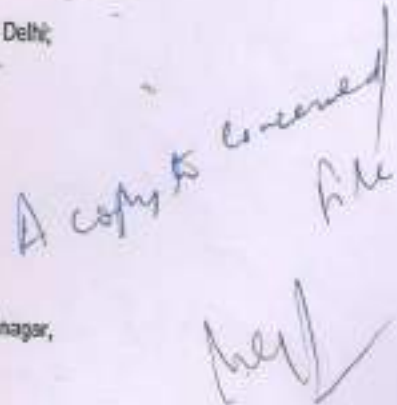 Delhi;
A copy to concerned
file
nagar,